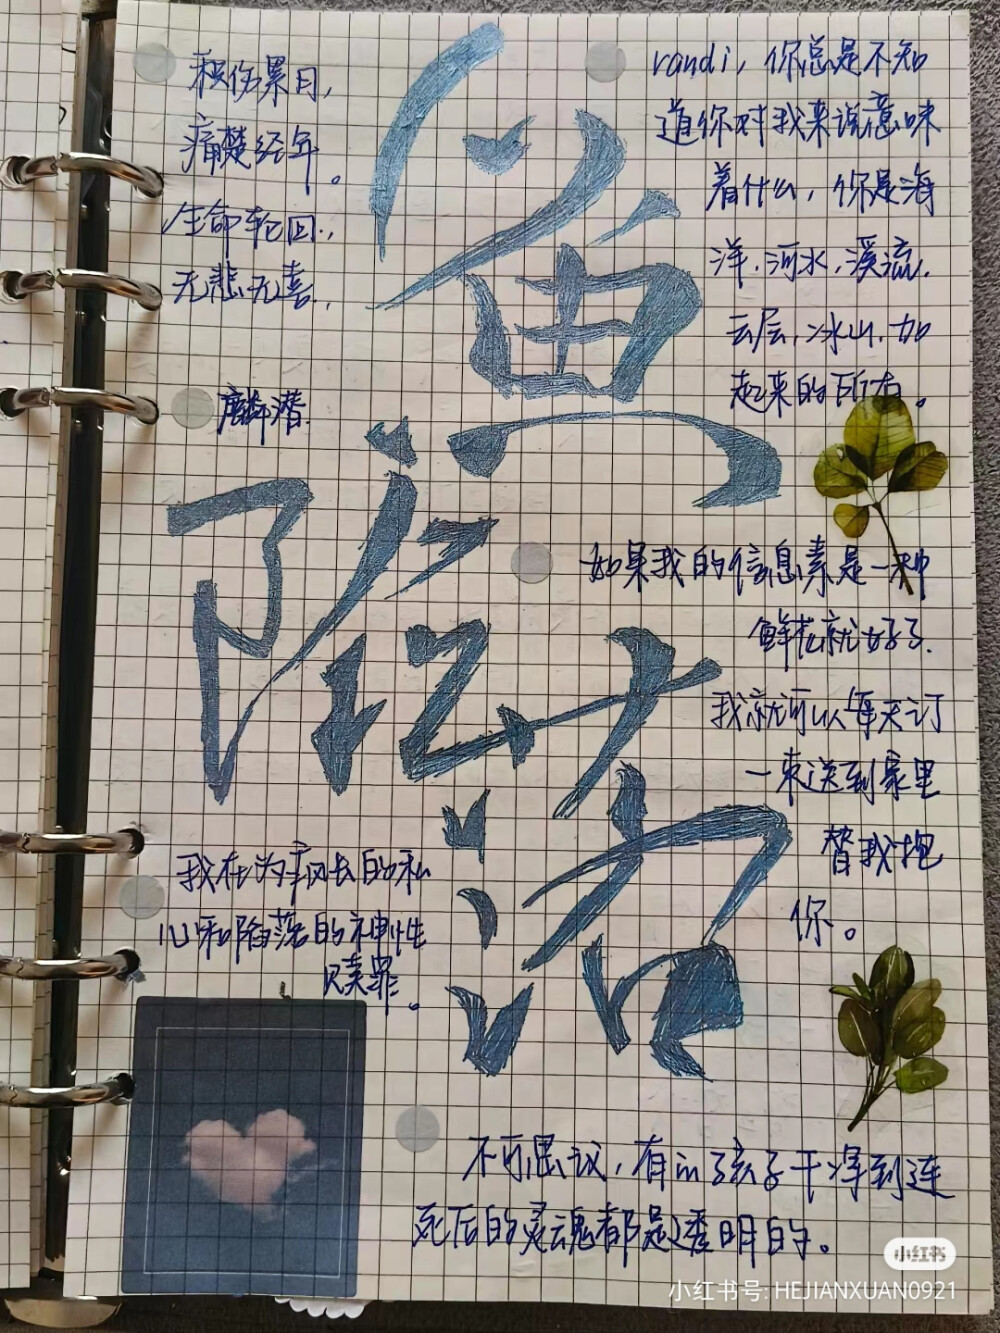 积伤累日，
痛楚经年。
生命轮回，
无悲无喜，
麟潜
randi，你总是不知
道你对我来说意味
着什么，你是海
洋，河水，溪流，
云层，冰山，加
起来的所有。
鱼
陷
落
如果我的信息素是一种
鲜花就好了，
我就可以每天订
一束送到家里
替我抱
你。
我在为疯长的私
心和陷落的神性
赎罪。
不可思议，有的孩子干净到连
死后的灵魂都是透明的。
小红书
小红书号: HEJIANXUAN0921